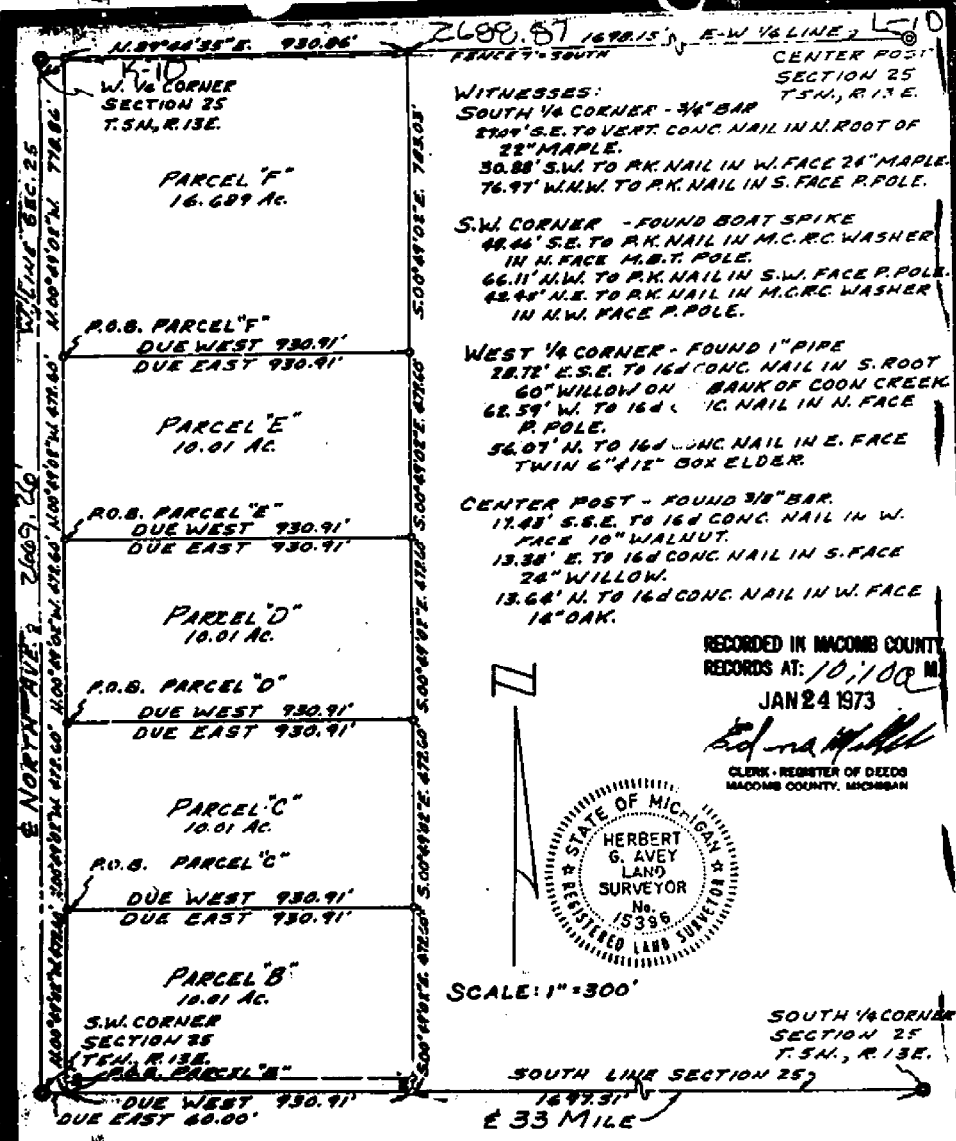 N.89°44'35"E. 930.86'
2688.87
1698.15'
E-W 1/4 LINE
L-10
K-10
FENCE 7' SOUTH
CENTER POST
SECTION 25
T.5N., R.13E.
W. 1/4 CORNER
SECTION 25
T.5N., R.13E.
W. LINE SEC. 25
N.00°49'02"W. 778.86'
S.00°49'02"E. 783.03'
PARCEL "F"
16.689 Ac.
P.O.B. PARCEL "F"
DUE WEST 930.91'
DUE EAST 930.91'
N.00°49'02"W. 472.60'
S.00°49'02"E. 472.60'
PARCEL "E"
10.01 Ac.
P.O.B. PARCEL "E"
DUE WEST 930.91'
DUE EAST 930.91'
N.00°49'02"W. 472.60'
S.00°49'02"E. 472.60'
PARCEL "D"
10.01 Ac.
P.O.B. PARCEL "D"
DUE WEST 930.91'
DUE EAST 930.91'
℄ NORTH AVE.
2669.26'
N.00°49'02"W. 472.60'
S.00°49'02"E. 472.60'
PARCEL "C"
10.01 Ac.
P.O.B. PARCEL "C"
DUE WEST 930.91'
DUE EAST 930.91'
N.00°49'02"W. 472.60'
S.00°49'02"E. 472.60'
PARCEL "B"
10.01 Ac.
S.W. CORNER
SECTION 25
T.5N., R.13E.
P.O.B. PARCEL "B"
DUE WEST 930.91'
DUE EAST 60.00'
WITNESSES:
SOUTH 1/4 CORNER - 3/4" BAR
S.E. TO VERT. CONC. NAIL IN N. ROOT OF
22" MAPLE.
30.88' S.W. TO P.K. NAIL IN W. FACE 26" MAPLE.
76.97' W.N.W. TO P.K. NAIL IN S. FACE P. POLE.
S.W. CORNER - FOUND BOAT SPIKE
S.E. TO P.K. NAIL IN M.C.R.C. WASHER
IN N. FACE M.B.T. POLE.
66.11' N.W. TO P.K. NAIL IN S.W. FACE P. POLE.
N.E. TO P.K. NAIL IN M.C.R.C WASHER
IN N.W. FACE P. POLE.
WEST 1/4 CORNER - FOUND 1" PIPE
28.72' E.S.E. TO 16d CONC. NAIL IN S. ROOT
60" WILLOW ON BANK OF COON CREEK.
62.59' W. TO 16d NAIL IN N. FACE
P. POLE.
56.07' N. TO 16d CONC. NAIL IN E. FACE
TWIN 6" & 12" BOX ELDER.
CENTER POST - FOUND 3/8" BAR.
17.43' S.S.E. TO 16d CONC. NAIL IN W.
FACE 10" WALNUT.
13.38' E. TO 16d CONC. NAIL IN S. FACE
24" WILLOW.
13.64' N. TO 16d CONC. NAIL IN W. FACE
14" OAK.
RECORDED IN MACOMB COUNTY
RECORDS AT: 10:10a M.
JAN 24 1973
CLERK - REGISTER OF DEEDS
MACOMB COUNTY, MICHIGAN
STATE OF MICHIGAN
HERBERT
G. AVEY
LAND
SURVEYOR
No.
15396
REGISTERED LAND SURVEYOR
N
SCALE: 1" = 300'
SOUTH 1/4 CORNER
SECTION 25
T.5N., R.13E.
SOUTH LINE SECTION 25
1697.31'
℄ 33 MILE